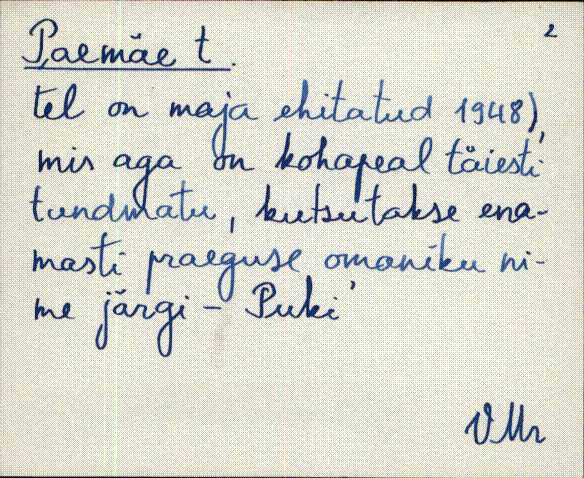 Paemäe t. 2
tel on maja ehitatud 1948),
mis aga on kohapeal täiesti
tundmatu, kutsutakse ena-
masti praeguse omaniku ni-
me järgi - Puki'
VMr